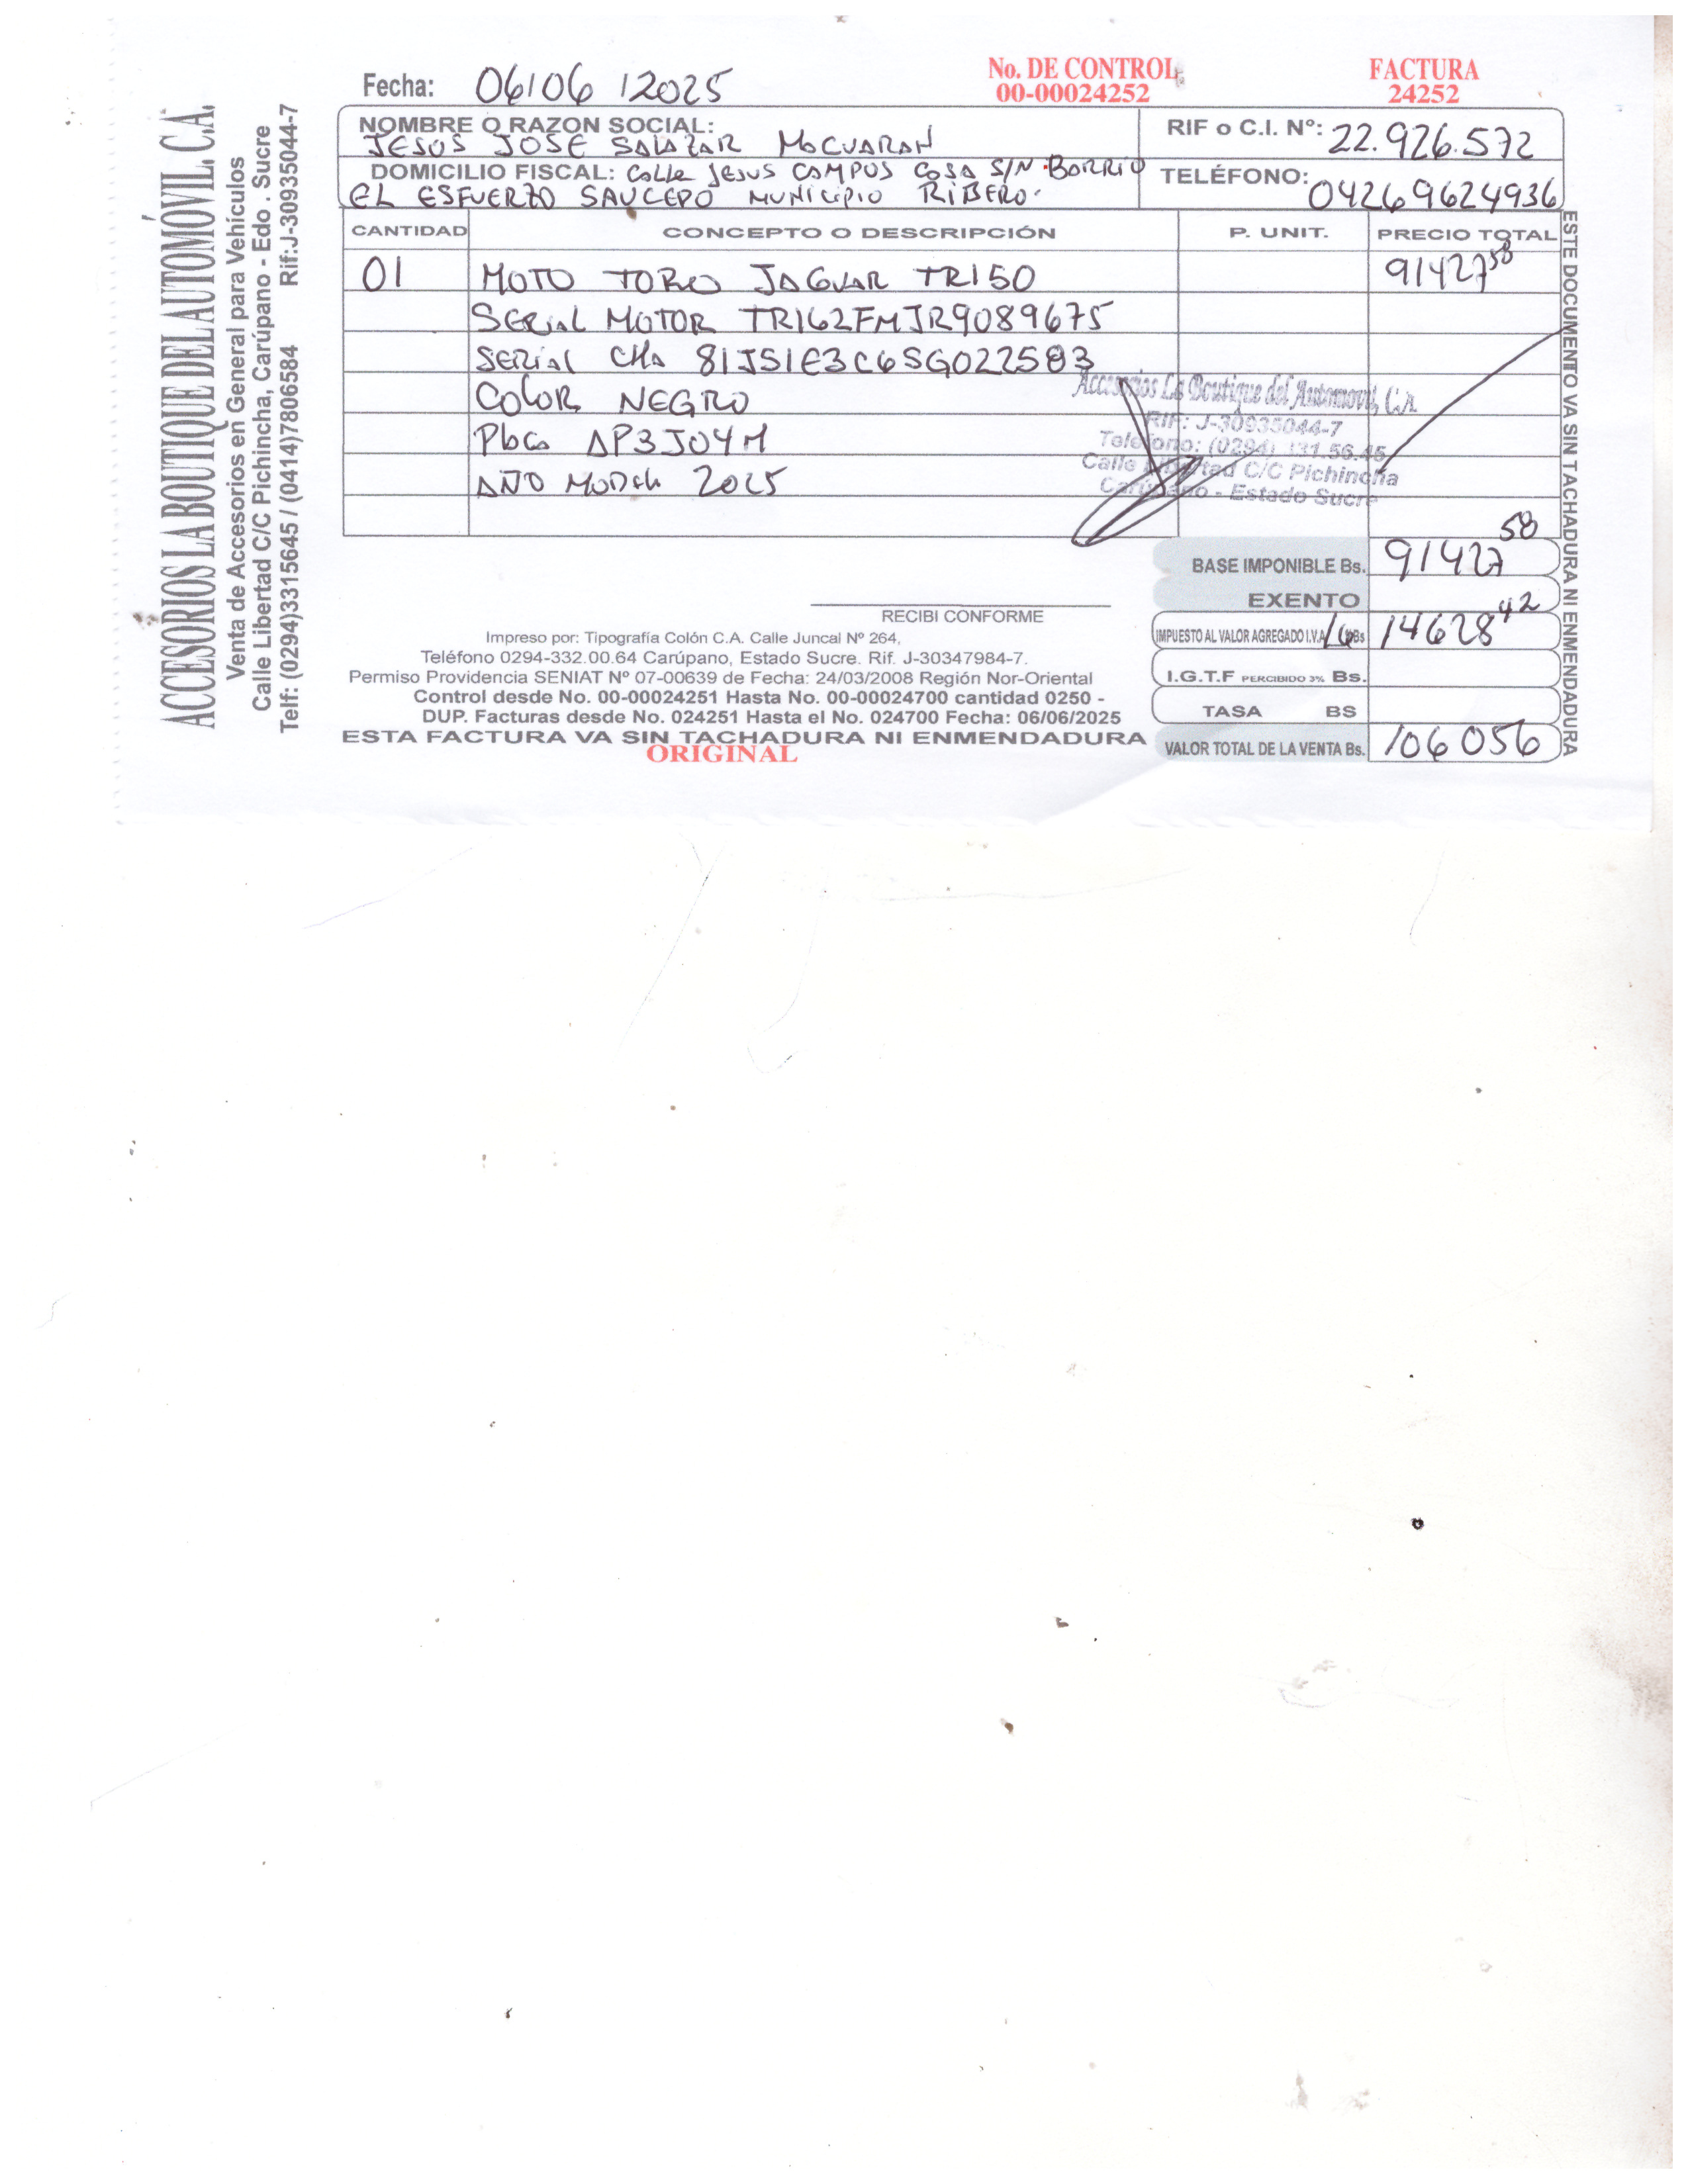 ACCESORIOS LA BOUTIQUE DEL AUTOMÓVIL, C.A.
Venta de Accesorios en General para Vehículos
Calle Libertad C/C Pichincha, Carúpano - Edo . Sucre
Telf: (0294)3315645 / (0414)7806584 Rif:J-30935044-7
Fecha: 06/06/2025
No. DE CONTROL
00-00024252
FACTURA
24252
NOMBRE O RAZON SOCIAL:
JESUS JOSE SALAZAR MACUARAN
RIF o C.I. Nº: 22.926.572
DOMICILIO FISCAL: Calle JESUS CAMPOS CASA S/N BARRIO
EL ESFUERZO SAUCEDO MUNICIPIO RIBERO.
TELÉFONO: 04269624936
CANTIDAD CONCEPTO O DESCRIPCIÓN P. UNIT. PRECIO TOTAL
01 MOTO TORO JAGUAR TR150 91427 58
SERIAL MOTOR TR162FMJR9089675
SERIAL CHA 81JS1E3C6SG022583
COLOR NEGRO
Placa AP3J04M
AÑO MODELO 2025
Accesorios La Boutique del Automovil, C.A.
RIF: J-30935044-7
Telefono: (0294) 331.56.45
Calle Libertad C/C Pichincha
Carúpano - Estado Sucre
BASE IMPONIBLE Bs. 91427 58
EXENTO
IMPUESTO AL VALOR AGREGADO I.V.A 16% Bs 14628 42
I.G.T.F PERCIBIDO 3% Bs.
TASA BS
VALOR TOTAL DE LA VENTA Bs. 106056
RECIBI CONFORME
Impreso por: Tipografía Colón C.A. Calle Juncal Nº 264,
Teléfono 0294-332.00.64 Carúpano, Estado Sucre. Rif. J-30347984-7.
Permiso Providencia SENIAT Nº 07-00639 de Fecha: 24/03/2008 Región Nor-Oriental
Control desde No. 00-00024251 Hasta No. 00-00024700 cantidad 0250 -
DUP. Facturas desde No. 024251 Hasta el No. 024700 Fecha: 06/06/2025
ESTA FACTURA VA SIN TACHADURA NI ENMENDADURA
ORIGINAL
ESTE DOCUMENTO VA SIN TACHADURA NI ENMENDADURA